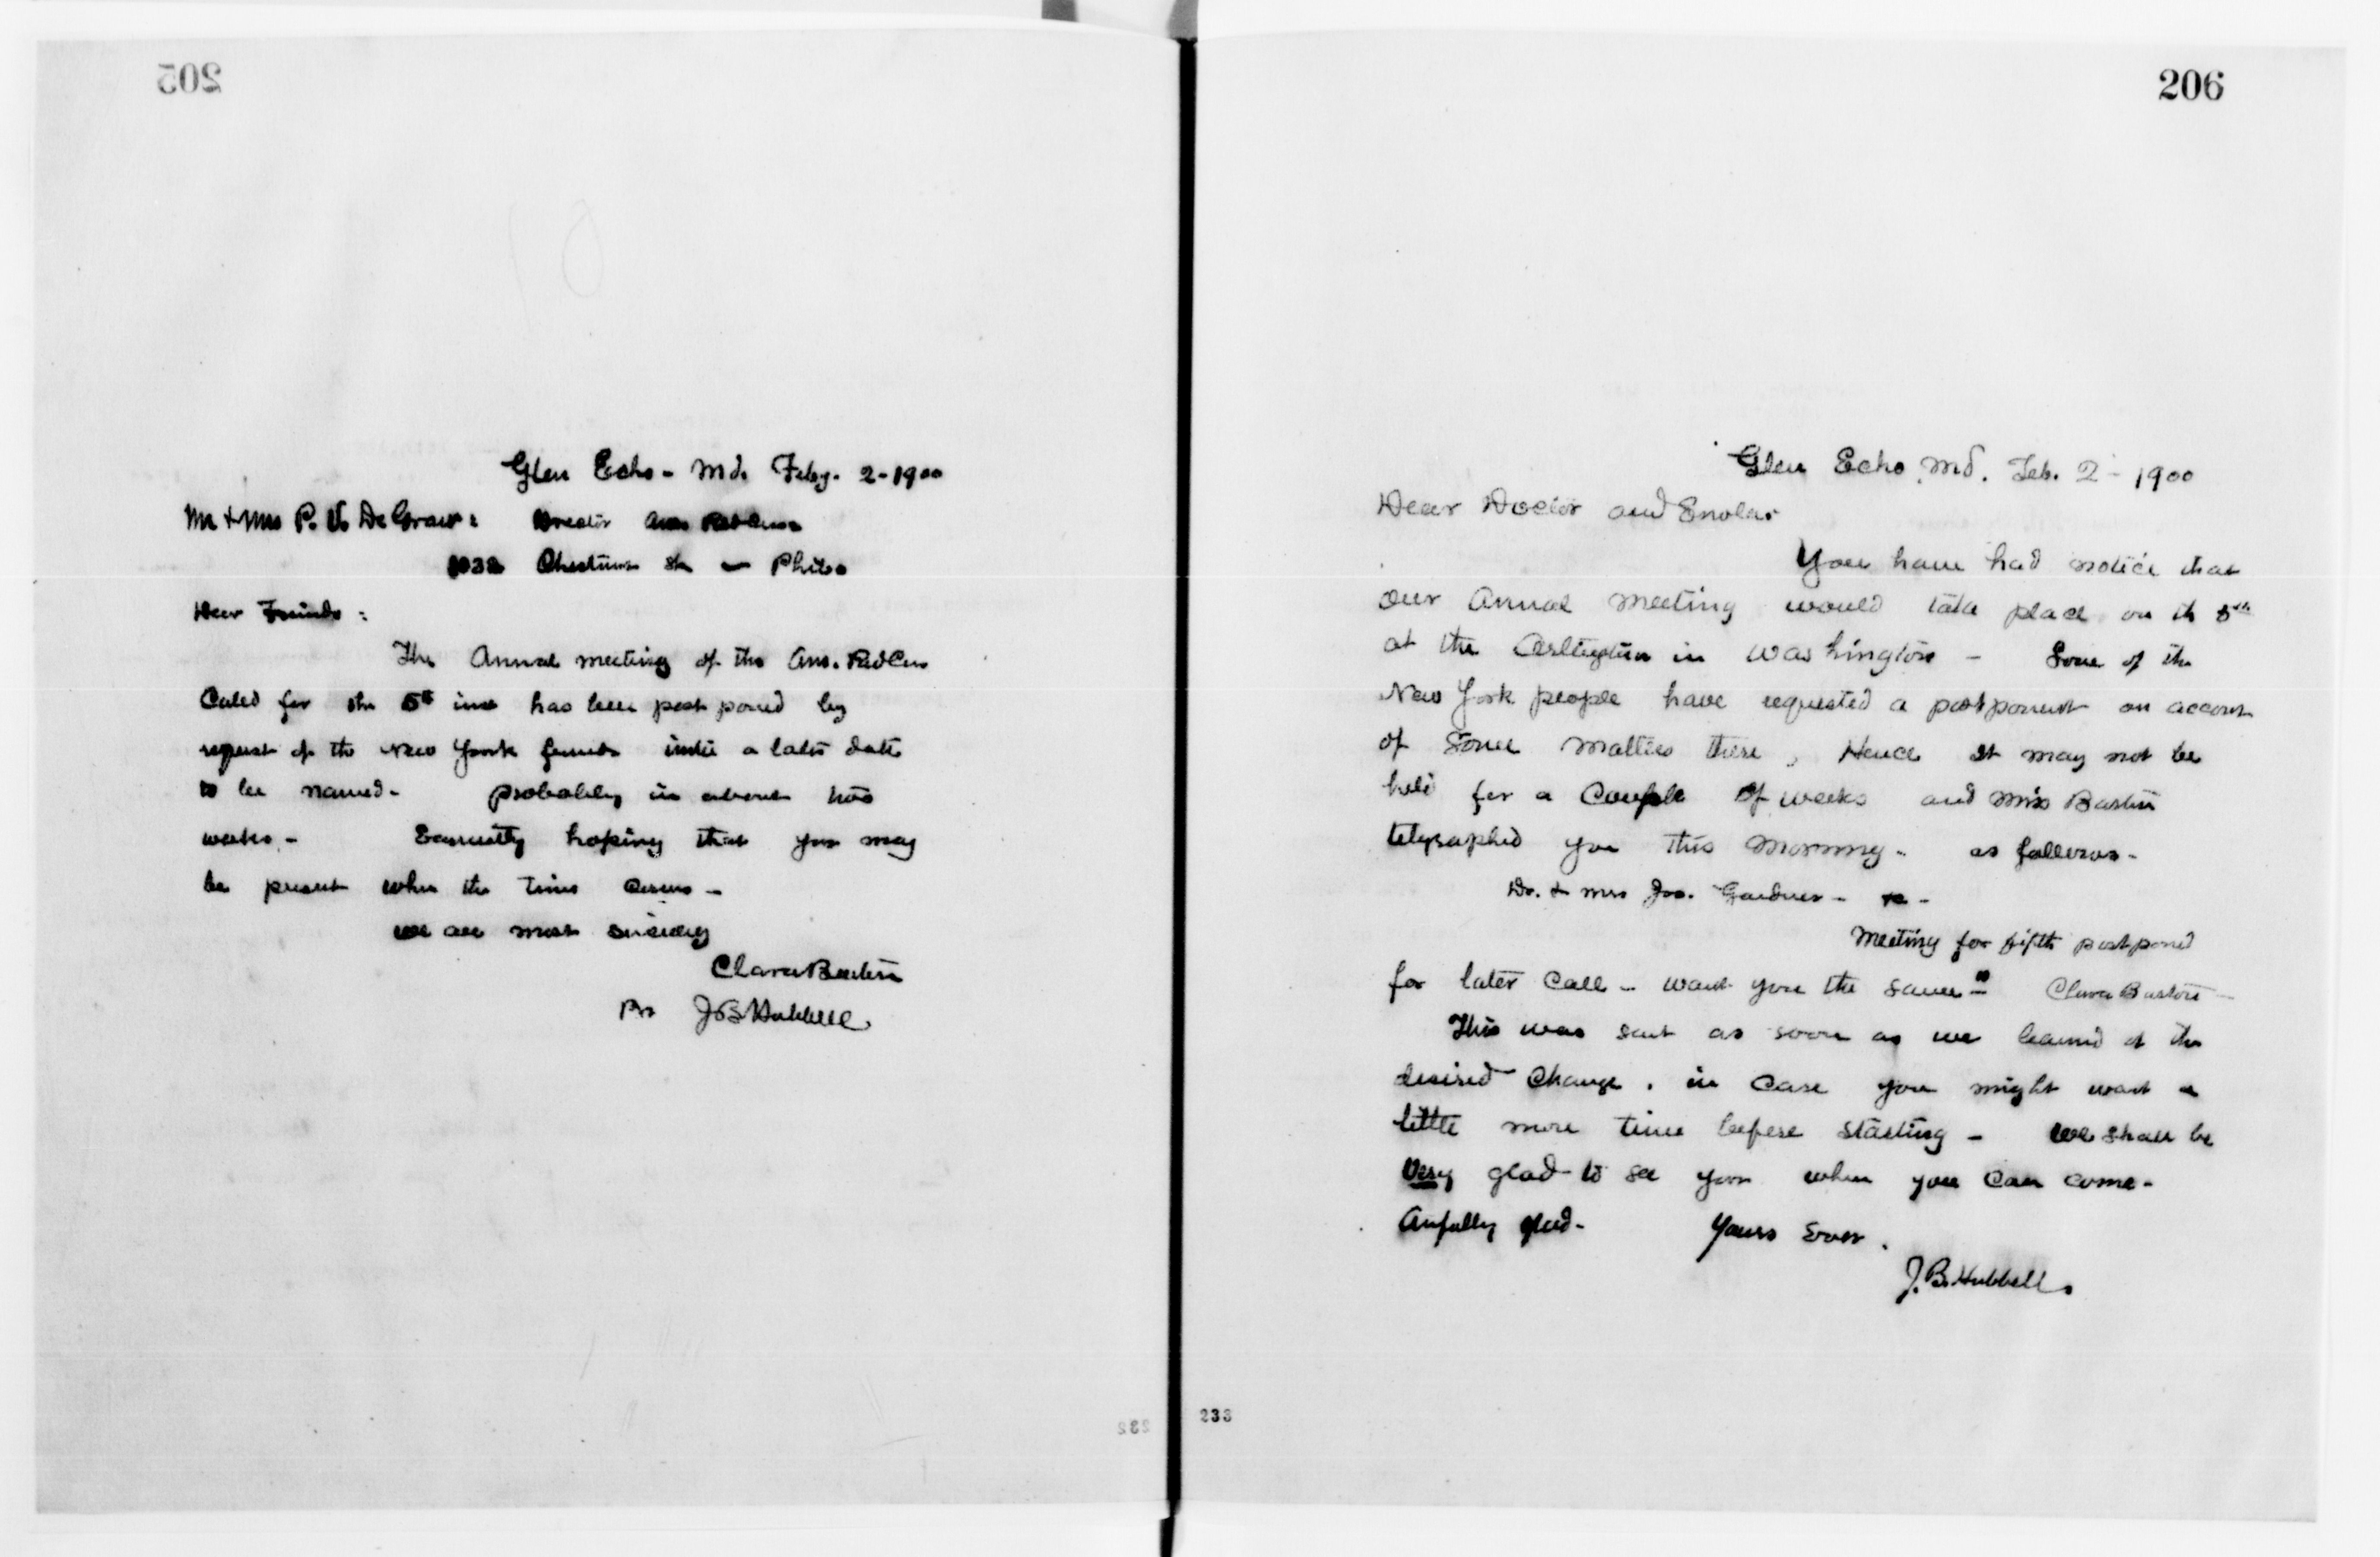 205
Glen Echo - Md. Feby. 2 - 1900
Mr & Mrs P. V. De Graw: Director Am Red Cross
Chestnut St - Phila
Dear Friends:
The Annual meeting of the Am. Red Cross
Called for the 5th inst has been post poned by
request of the New York friends until a later date
to be named - probably in about two
weeks - Earnestly hoping that you may
be present when the time comes -
we are most sincerely
Clara Barton
Per J B Hubbell
232
206
Glen Echo, Md. Feb. 2 - 1900
Dear Doctor and Enola
You have had notice that
our Annual meeting would take place on the 5th
at the Arlington in Washington - Some of the
New York people have requested a postponent on account
of some matters there, Hence it may not be
held for a Couple of weeks and Miss Barton
telegraphed you this morning - as follows -
Dr. & Mrs Jos. Gardner -
Meeting for fifth postponed
for later Call - want you the same " Clara Barton -
This was sent as soon as we learned of the
desired Change, in Case you might want a
little more time before starting - We shall be
Very glad to see you when you Can come -
Awfully glad - Yours Ever.
J. B. Hubbell.
233